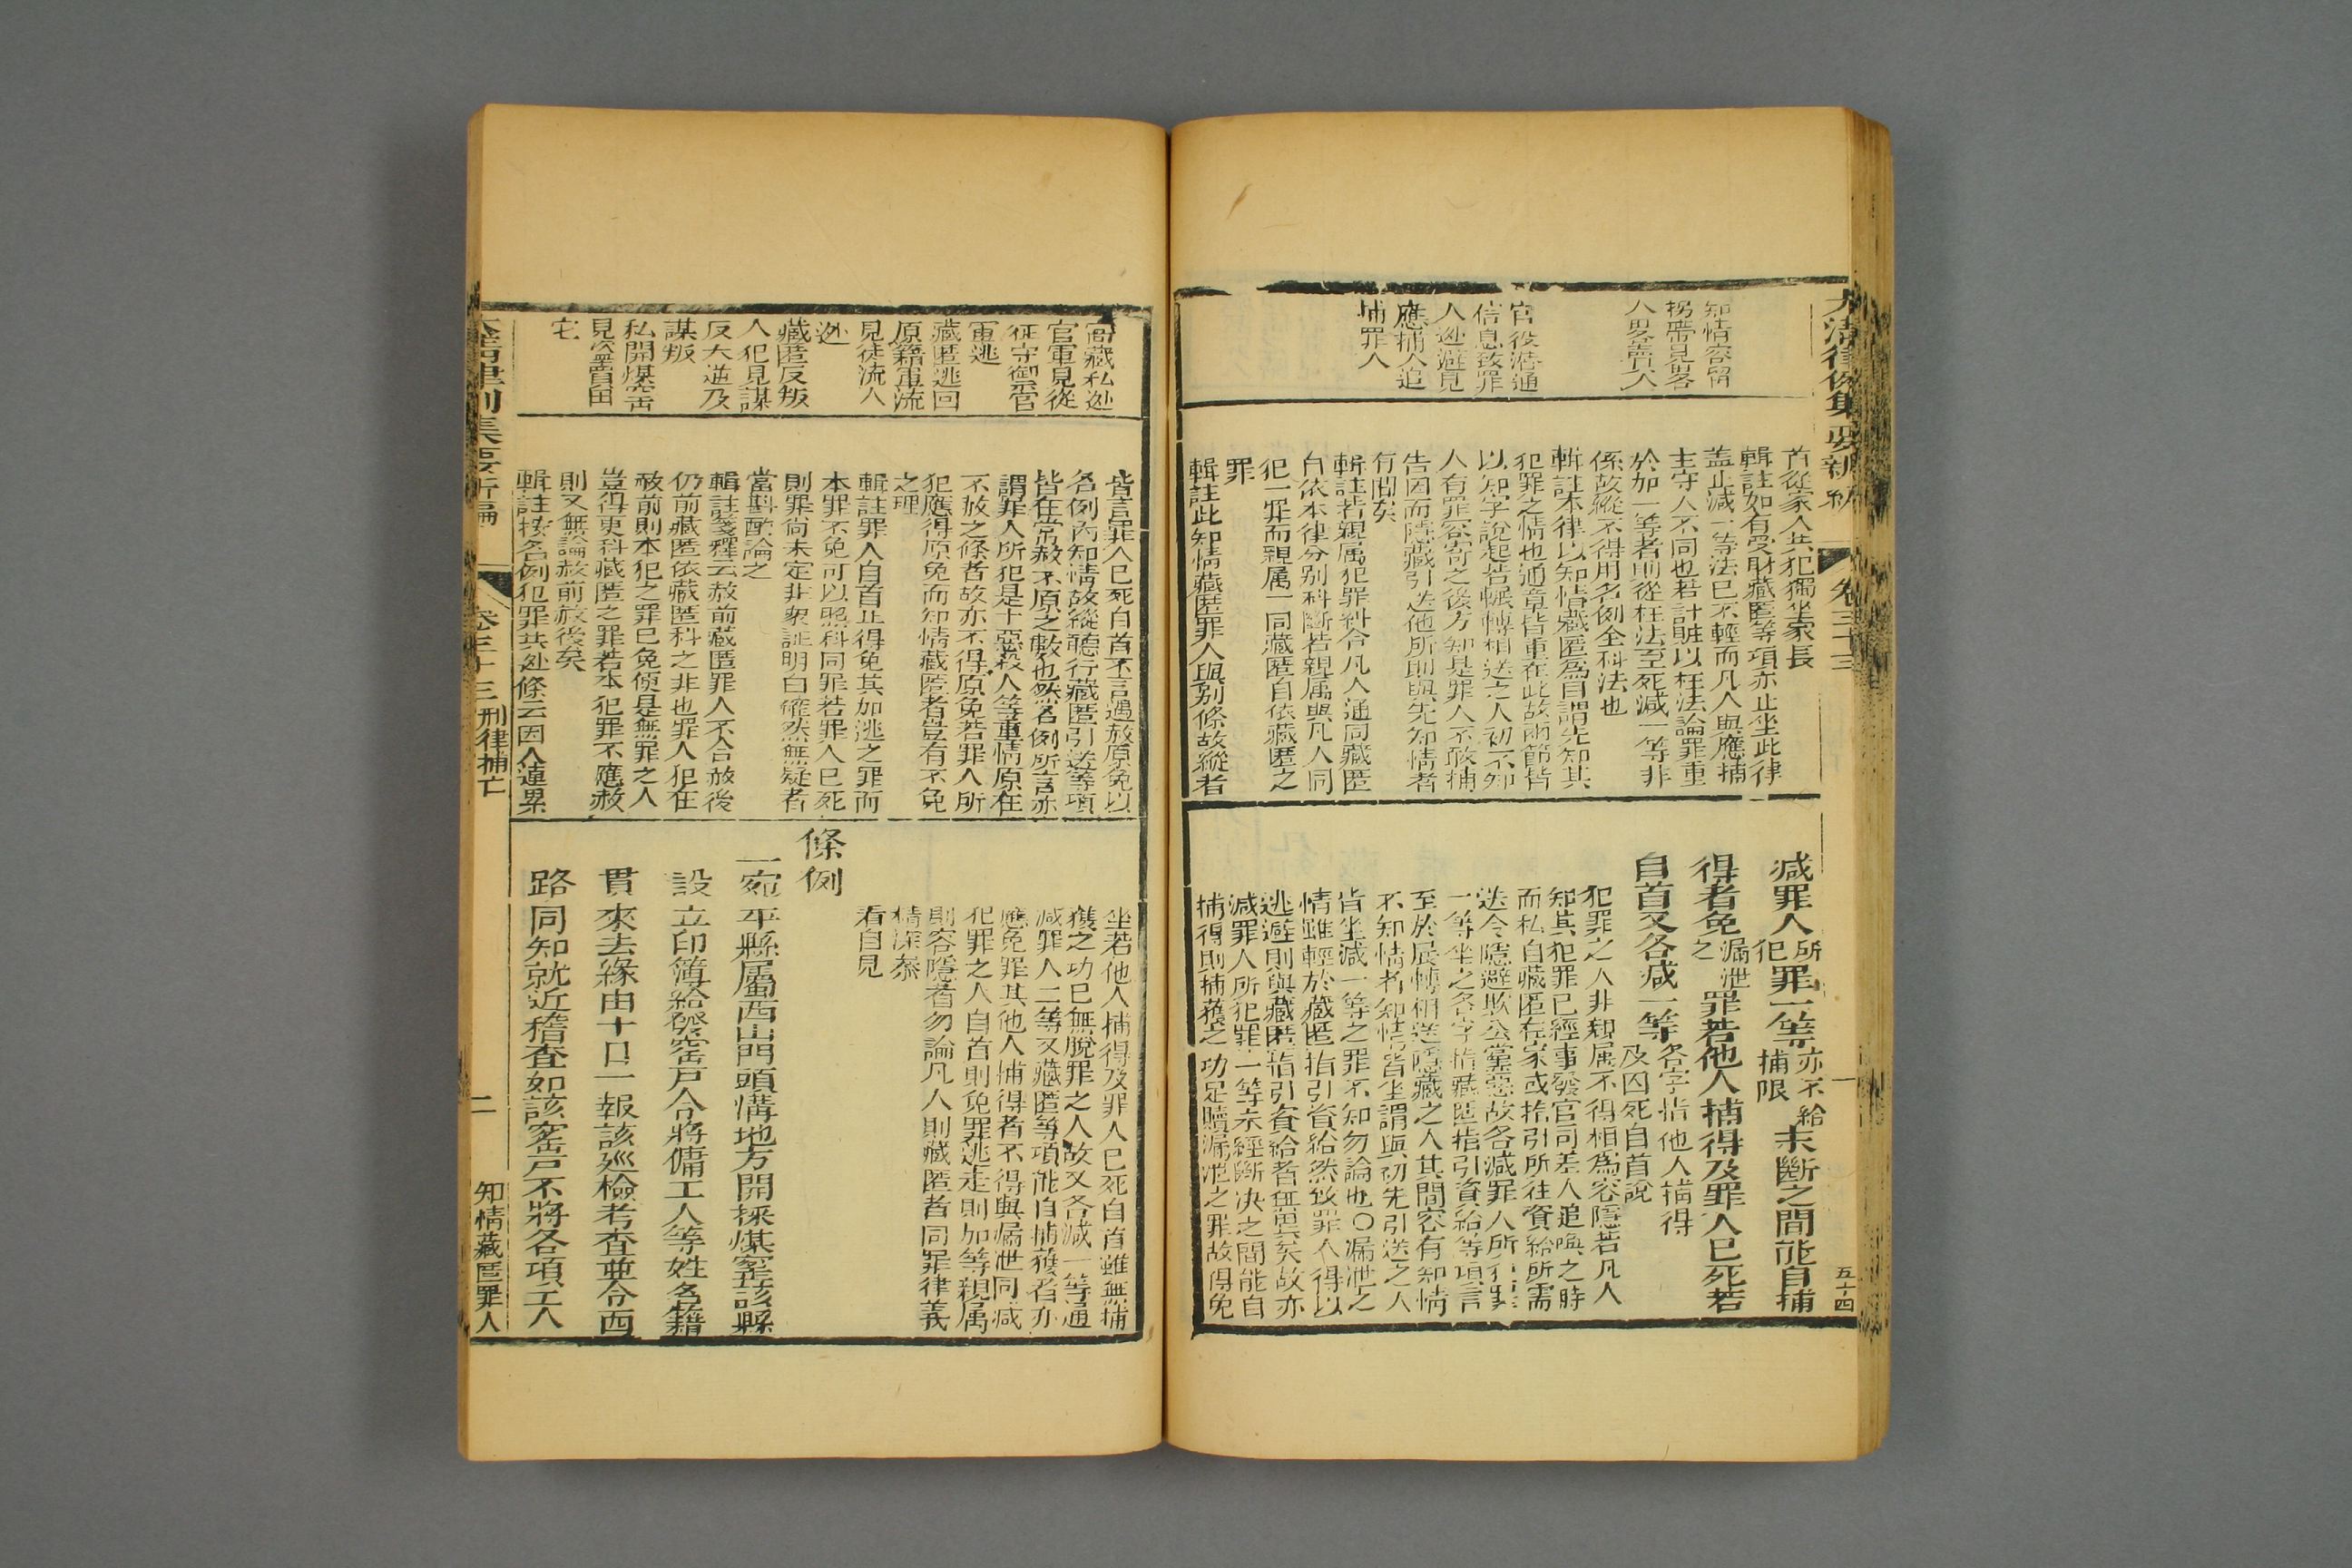 大清律例集要新編
卷三十三
五十四
知情容留
拐帶見畧
人畧賣人
官役潛通
信息致罪
人逃避見
應捕人追
捕罪人
首從家人共犯獨坐家長
輯註如有受財藏匿等項亦止坐此律
蓋止減一等法已不輕而凡人與應捕
主守人不同也若計賍以枉法論罪重
於加一等者則從枉法至死減一等非
係故縱不得用名例全科法也
輯註本律以知情藏匿為目謂先知其
犯罪之情也通章皆重在此故兩節皆
以知字說起若展轉相送之人初不知
人有罪容寄之後方知是罪人不敢捕
告因而隱藏引送他所則與先知情者
有間矣
輯註若親属犯罪糾合凡人通同藏匿
自依本律分别科斷若親属與凡人同
犯一罪而親属一同藏匿自依藏匿之
罪
輯註此知情藏匿罪人與别條故縱者
減罪人所犯罪一等亦不給捕限未斷之間能自捕
得者免漏泄之罪若他人捕得及罪人已死若
自首又各減一等各字指他人捕得及囚死自首說
犯罪之人非親属不得相為容隱若凡人
知其犯罪已經事發官司差人追喚之時
而私自藏匿在家或指引所往資給所需
送令隱避欺公黨惡故各減罪人所犯罪
一等坐之各字指藏匿指引資給等項言
至於展轉相送隱藏之人其間容有知情
不知情者知情皆坐謂與初先引送之人
皆坐減一等之罪不知勿論也〇漏泄之
情雖輕於藏匿指引資給然致罪人得以
逃避則與藏匿指引資給者無異矣故亦
減罪人所犯罪一等未經斷决之間能自
捕得則捕獲之功足贖漏泄之罪故得免
窩藏私逃
官軍見從
征守禦官
軍逃
藏匿逃回
原籍軍流
見徒流人
逃
藏匿反叛
人犯見謀
反大逆及
謀叛
私開煤窑
見盜賣田
宅
皆言罪人已死自首不言遇赦原免以
名例內知情故縱聽行藏匿引送等項
皆在常赦不原之數也然名例所言亦
謂罪人所犯是十惡殺人等重情原在
不赦之條者故亦不得原免若罪人所
犯應得原免而知情藏匿者豈有不免
之理
輯註罪人自首止得免其加逃之罪而
本罪不免可以照科同罪若罪人已死
則罪尚未定非衆証明白確然無疑者
當斟酌論之
輯註箋釋云赦前藏匿罪人不合赦後
仍前藏匿依藏匿科之非也罪人犯在
赦前則本犯之罪已免便是無罪之人
豈得更科藏匿之罪若本犯罪不應赦
則又無論赦前赦後矣
輯註按名例犯罪共逃條云因人連累
坐若他人捕得及罪人已死自首雖無捕
獲之功已無脫罪之人故又各減一等通
減罪人二等又藏匿等項能自捕獲者亦
應免罪其他人捕得者不得與漏泄同減
犯罪之人自首則免罪逃走則加等親属
則容隱者勿論凡人則藏匿者同罪律義
精深叅
看自見
條例
一宛平縣屬西山門頭溝地方開採煤窑該縣
設立印簿給發窑戸令將傭工人等姓名籍
貫來去緣由十日一報該廵檢考查並令西
路同知就近稽查如該窑戸不將各項工人
大清律例集要新編
卷三十三 刑律捕亡
二
知情藏匿罪人